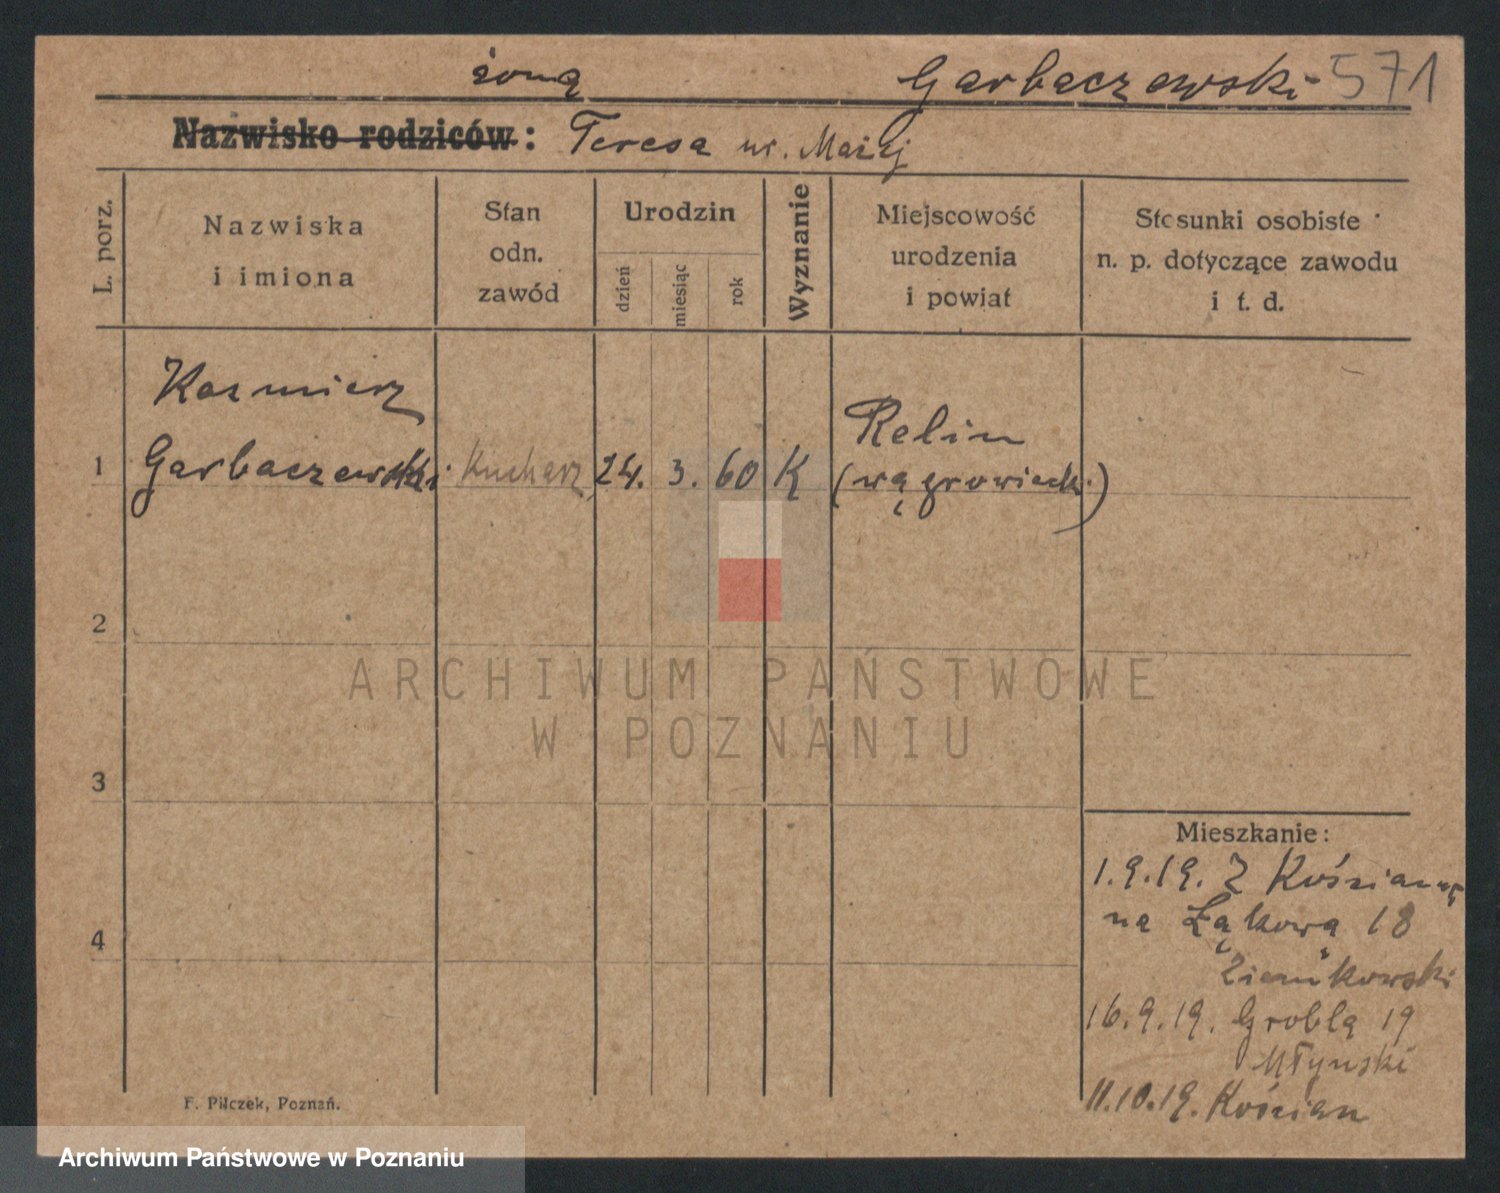 żoną Garbaczewski 571
Nazwisko rodziców: Teresa ur. Maćej
L. porz.
Nazwiska
i imiona
Stan
odn.
zawód
Urodzin
dzień
miesiąc
rok
Wyznanie
Miejscowość
urodzenia
i powiat
Stosunki osobiste
n. p. dotyczące zawodu
i t. d.
Kazmierz
Relin
1 Garbaczewski Kucharz 24. 3. 60 K (wągrowieck.)
2
ARCHIWUM PAŃSTWOWE
W POZNANIU
3
Mieszkanie:
1.9.19. Z Kościana
na Łąkową 18
4
16.9.19. Groblą 19
Młynski
11.10.19. Kościan
F. Pilczek, Poznań.
Archiwum Państwowe w Poznaniu